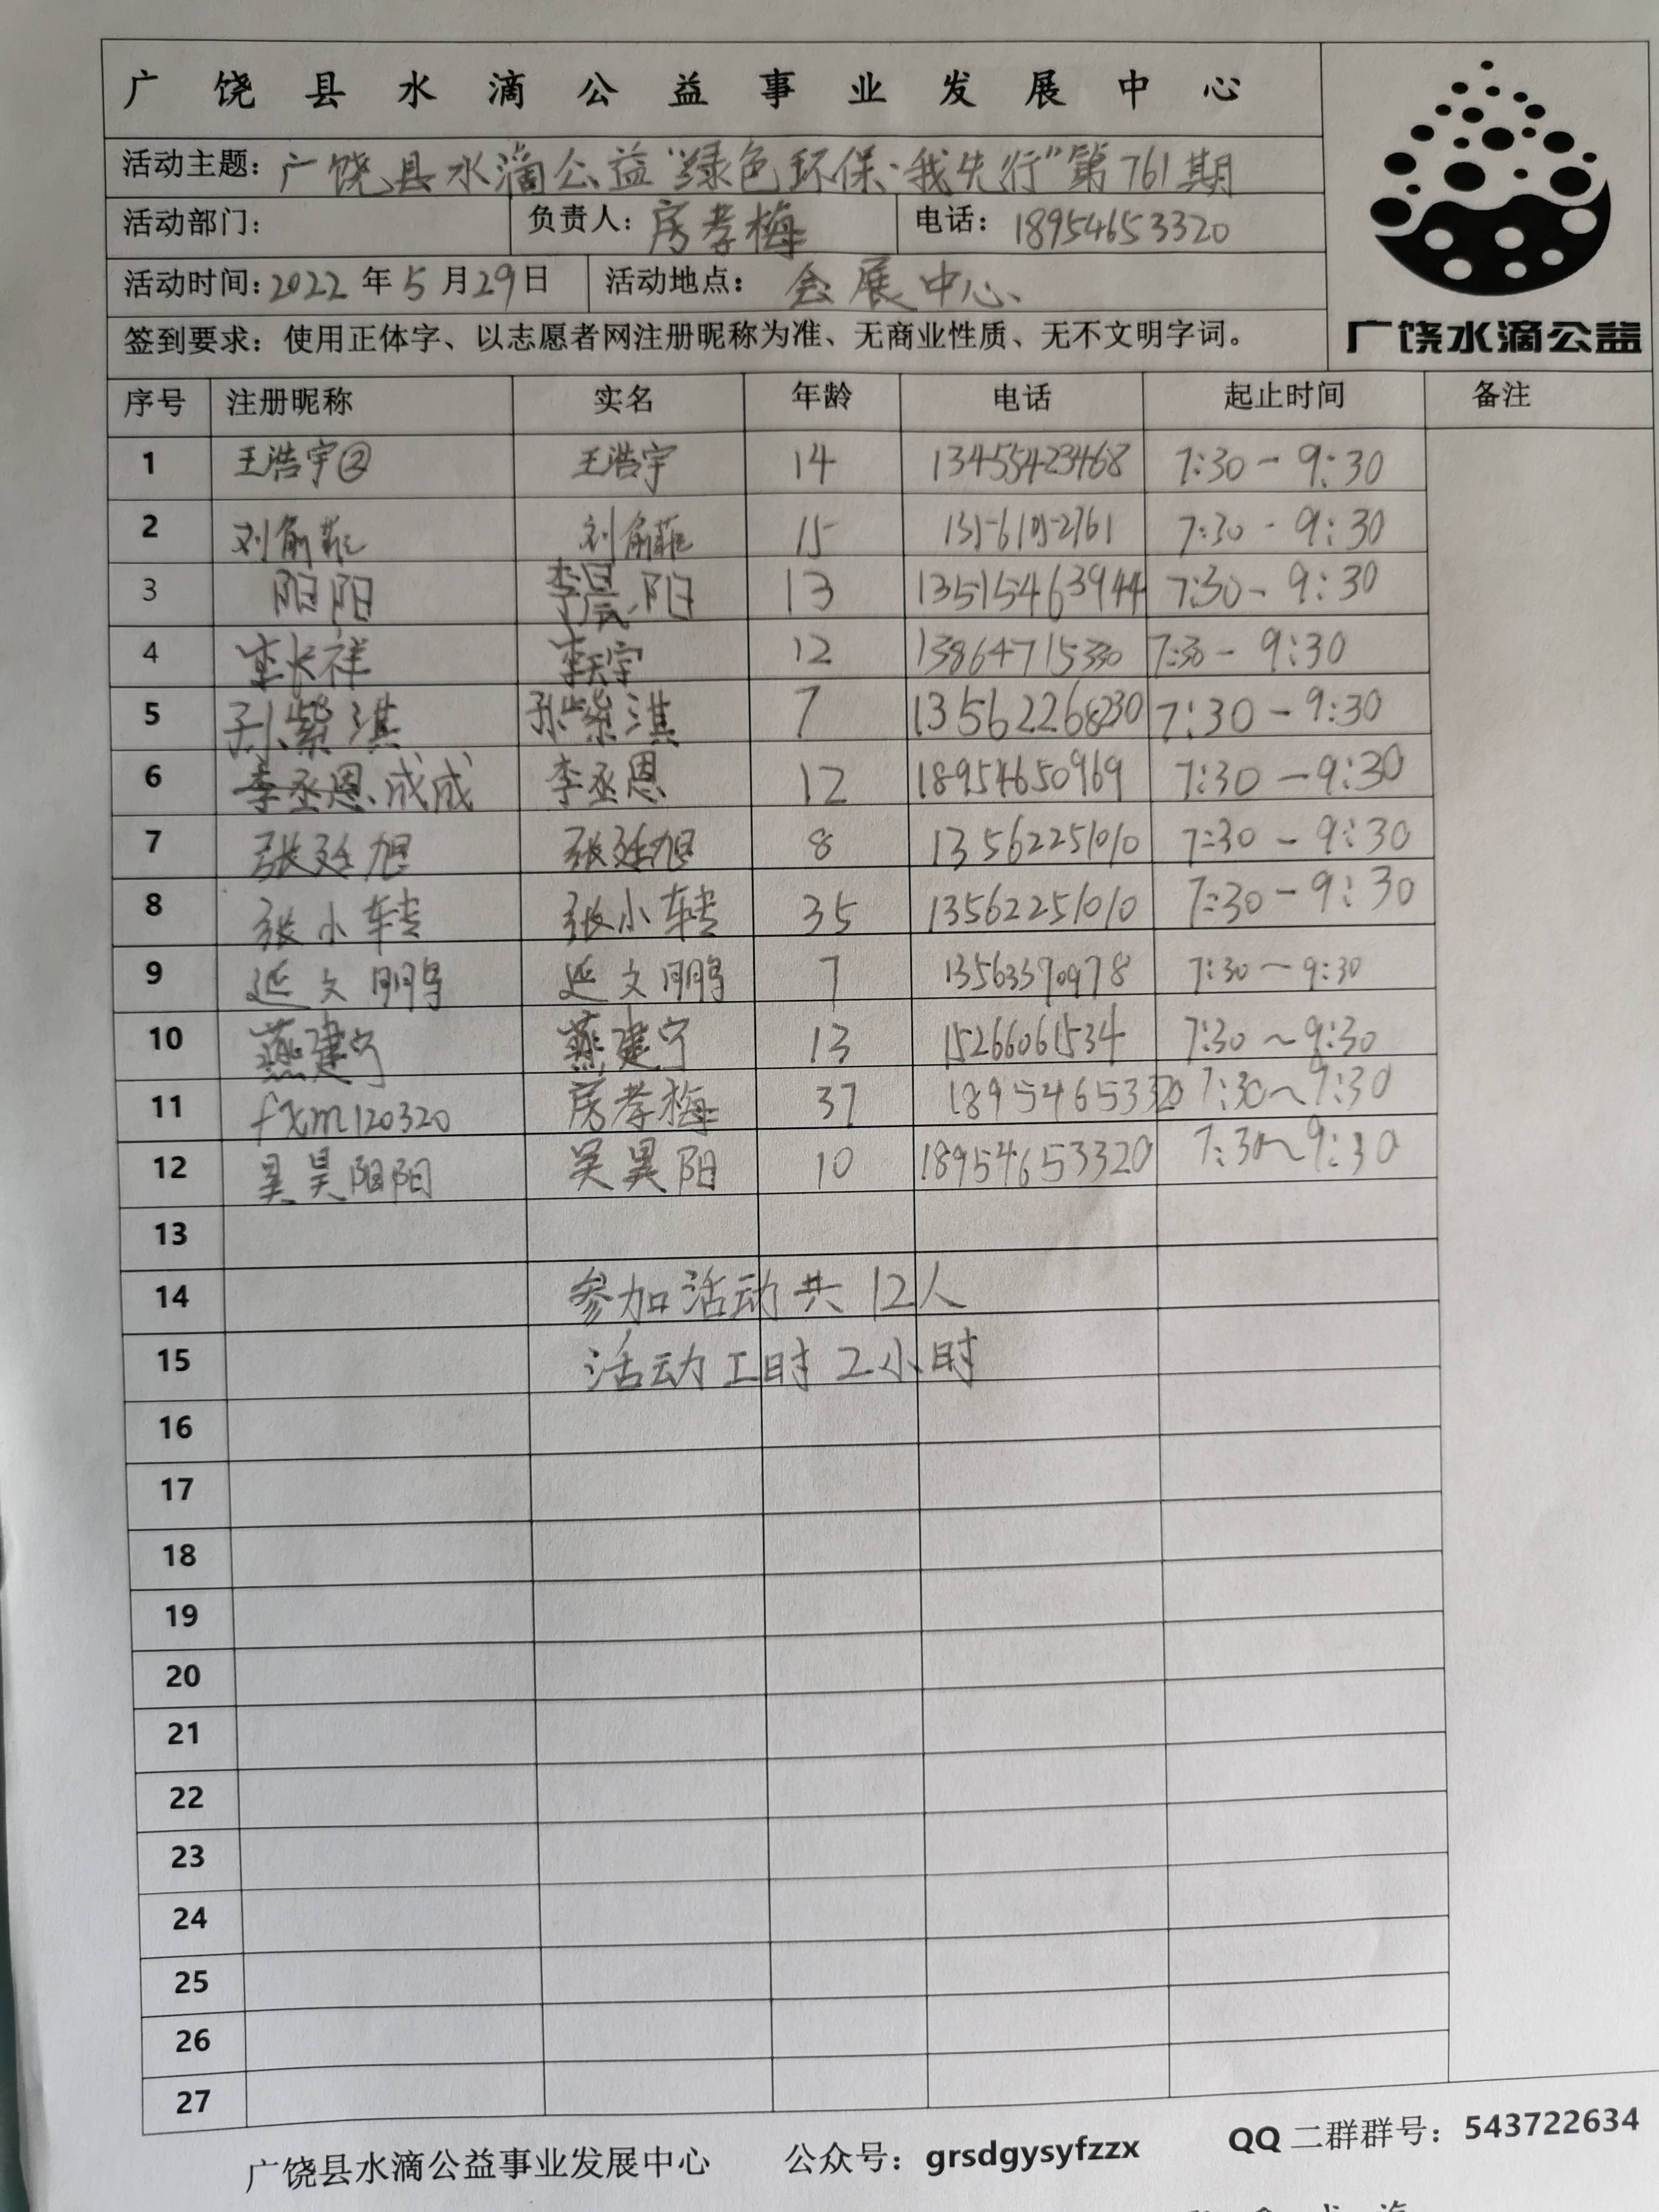 广饶县水滴公益事业发展中心
活动主题：广饶县水滴公益“绿色环保·我先行”第761期
活动部门： 负责人：房孝梅 电话：18954653320
活动时间：2022年5月29日 活动地点：会展中心
签到要求：使用正体字、以志愿者网注册昵称为准、无商业性质、无不文明字词。
广饶水滴公益
序号 注册昵称 实名 年龄 电话 起止时间 备注
1 王浩宇② 王浩宇 14 13455423468 7:30-9:30
2 刘俞菲 刘俞菲 15 7:30-9:30
3 阳阳 李晨阳 13 13515463944 7:30-9:30
4 李长祥 李天宇 12 13864715330 7:30-9:30
5 孙紫淇 孙紫淇 7 13562268230 7:30-9:30
6 李丞恩、成成 李丞恩 12 18954650969 7:30-9:30
7 张廷旭 张廷旭 8 13562251010 7:30-9:30
8 张小转 张小转 35 13562251010 7:30-9:30
9 延文鹏 延文鹏 7 13563370978 7:30~9:30
10 燕建宁 燕建宁 13 15266061534 7:30~9:30
11 fxm120320 房孝梅 37 18954653320 7:30~9:30
12 昊昊阳阳 吴昊阳 10 18954653320 7:30~9:30
13
14 参加活动共12人
15 活动工时2小时
16
17
18
19
20
21
22
23
24
25
26
27
广饶县水滴公益事业发展中心 公众号：grsdgysyfzzx QQ二群群号：543722634